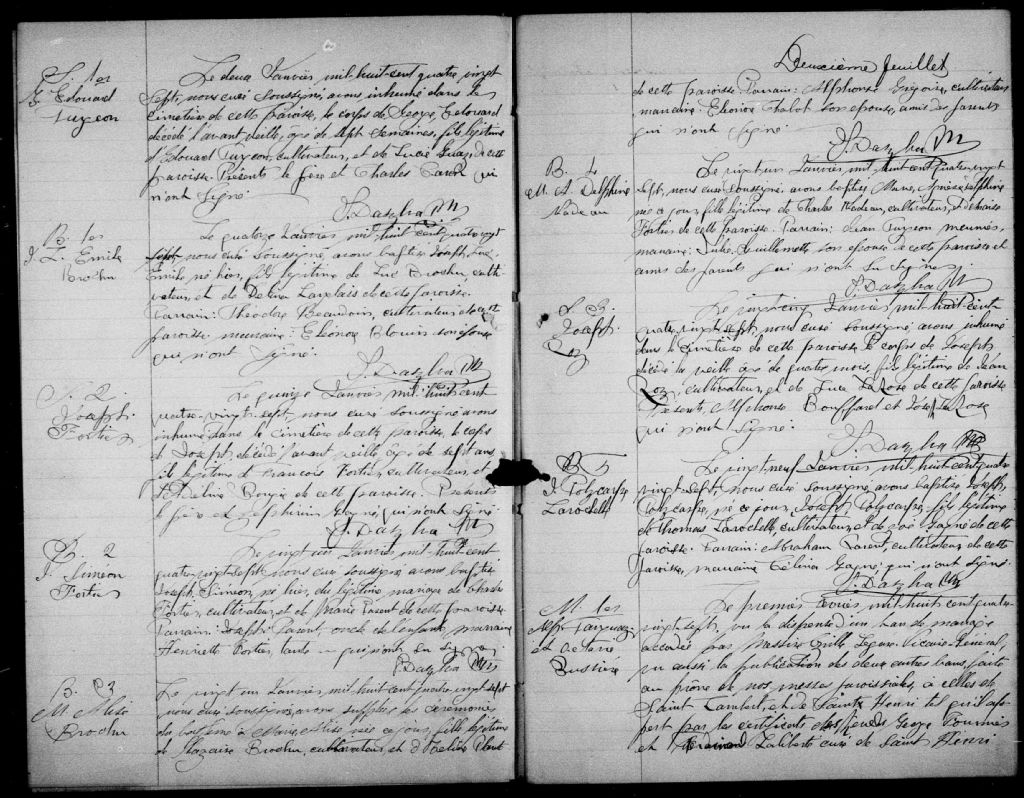 S. 1er
G. Edouard
Turgeon
Le deux Janvier mil-huit-cent-quatre-vingt
Sept, nous curé soussigné, avons inhumé dans le
cimetière de cette paroisse, le corps de George Edouard
décédé l'avant veille, âgé de sept semaines, fils légitime
d'Edouard Turgeon, cultivateur, et de Lucie de cette
paroisse. Présents le père et Charles qui
n'ont signé.
B. 1er
J. L. Emile
Brochu
Le quatorze Janvier mil-huit-cent-quatre-vingt
Sept nous curé soussigné, avons baptisé Joseph, Luc
Emile, né hier, fils légitime de Luc Brochu, culti
vateur, et de Delina Langlais de cette paroisse.
Parrain: Théodore Beaudoin, cultivateur de cette
paroisse, marraine: Eléonore Blouin son épouse
qui n'ont signé.
S. 2
Joseph
Fortier
Le quinze Janvier mil-huit-cent
quatre-vingt-sept, nous curé soussigné avons
inhumé dans le cimetière de cette paroisse, le corps
de Joseph, décédé l'avant veille âgé de sept ans,
fils légitime de François Fortier, cultivateur, et
de cette paroisse. Présents
le père et Gagné qui n'ont signé.
B. 2
J. Siméon
Fortier
Le vingt un Janvier mil-huit-cent
quatre-vingt-sept nous curé soussigné avons baptisé
Joseph Siméon, né hier, du légitime mariage de Charles
Fortier, cultivateur, et de Marie Parent de cette paroisse
Parrain: Joseph Parent, oncle de l'enfant, marraine
Henriette Fortier, tante qui n'ont su signer.
B. 3
M. Alise
Brochu
Le vingt un Janvier mil-huit-cent-quatre-vingt-sept
nous curé soussigné, avons suppléé les cérémonies
du baptême à Marie, Alise née ce jour, fille légitime
de Nazaire Brochu, cultivateur, et
Deuxième feuillet
de cette paroisse Parrain: Alphonse Grégoire, cultivateur
marraine: Eléonore Chabot son épouse, amis des parents
qui n'ont signé.
B. 4
M. A. Delphine
Nadeau
Le vingt un Janvier mil-huit-cent-quatre-vingt
sept, nous curé soussigné, avons baptisé Marie, Delphine
née ce jour, fille légitime de Charles Nadeau, cultivateur, et de
Fortier de cette paroisse. Parrain: Jean Turgeon meunier,
marraine: Julie Ouillemette son épouse de cette paroisse et
amis des parents qui n'ont su signer.
S. 3
Joseph
Roy
Le vingt-cinq Janvier mil-huit-cent
quatre-vingt-sept, nous curé soussigné avons inhumé
dans le cimetière de cette paroisse le corps de Joseph
décédé la veille âgé de quatre mois, fils légitime de Jean
Roy, cultivateur, et de Luce LaRose de cette paroisse
Présents, Alphonse Bouffard et LaRose
qui n'ont signé.
B. 5
J. Polycarpe
Larochelle
Le vingt-neuf Janvier mil-huit-cent-quatre
vingt-sept, nous curé soussigné avons baptisé Joseph,
Polycarpe, né ce jour, fils légitime
de Thomas Larochelle cultivateur, et de Zoé Gagné de cette
paroisse. Parrain: Abraham Parent, cultivateur de cette
paroisse, marraine Célina Gagné qui n'ont signé.
M. 1er
et
Bussière
Le premier Février mil-huit-cent-quatre-
vingt-sept, vu la dispense d'un ban de mariage
accordée par Messire Vicaire-Général,
vu aussi la publication des deux autres bans, faite
au prône de nos messes paroissiales, à celles de
Saint Lambert, et de Saint Henri tel qu'il ap
pert par les certificats des George Pommier
et Laliberté curé de Saint Henri